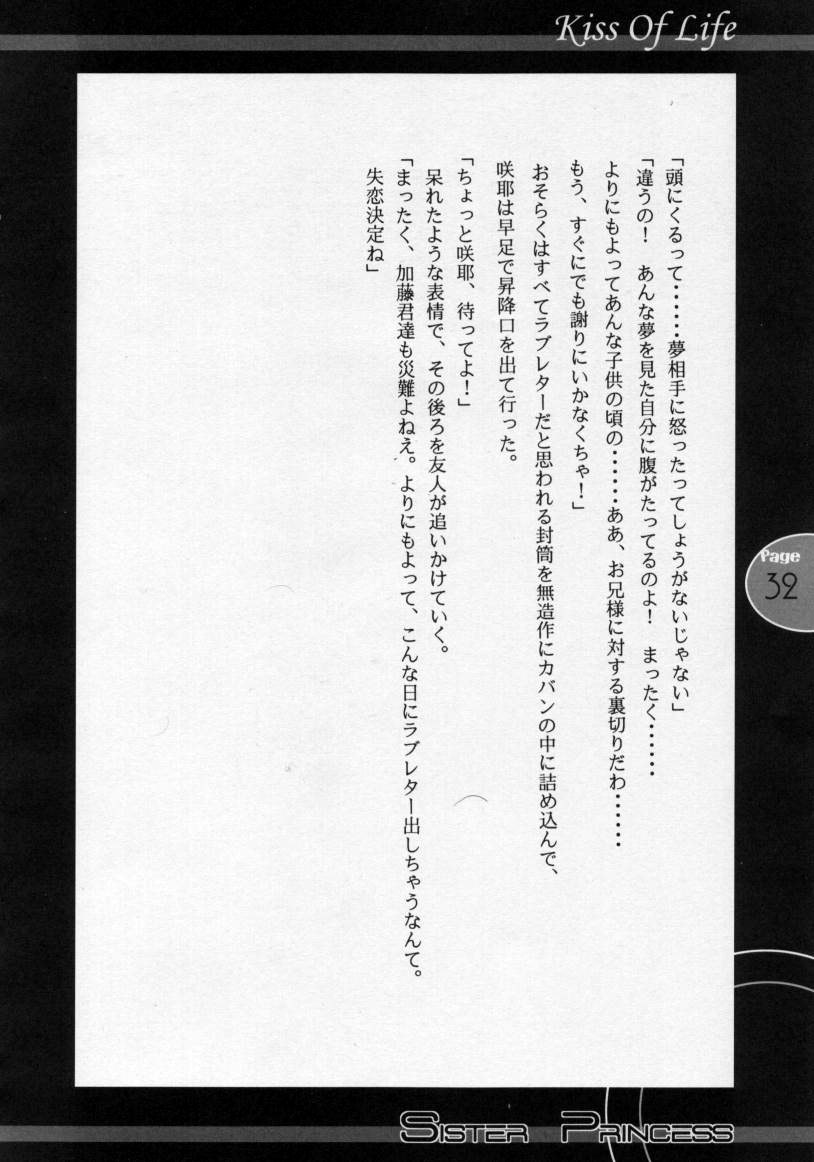 Kiss Of Life
「頭にくるって……夢相手に怒ったってしょうがないじゃない」
「違うの！　あんな夢を見た自分に腹がたってるのよ！　まったく……
よりにもよってあんな子供の頃の……ああ、お兄様に対する裏切りだわ……
もう、すぐにでも謝りにいかなくちゃ！」
おそらくはすべてラブレターだと思われる封筒を無造作にカバンの中に詰め込んで、
咲耶は早足で昇降口を出て行った。
「ちょっと咲耶、待ってよ！」
呆れたような表情で、その後ろを友人が追いかけていく。
「まったく、加藤君達も災難よねえ。よりにもよって、こんな日にラブレター出しちゃうなんて。
失恋決定ね」
Page
32
SISTER PRINCESS